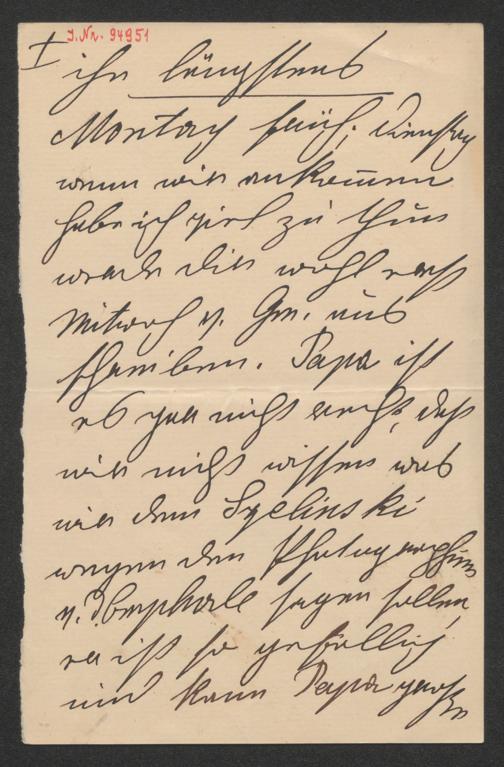 J.Nr. 94951
ihr längstens
Montag früh; Dienstag
wenn wir ankommen
habe ich viel zu thun
werde Dir wohl erst
Mitwoch v. Gm. aus
schreiben. Papa ist
es gar nicht recht, daß
wir nicht wissen was
wir dem Syelinski
wegen den Photographien
v. sagen sollen,
er ist so gefällig
und kann Papa ganze